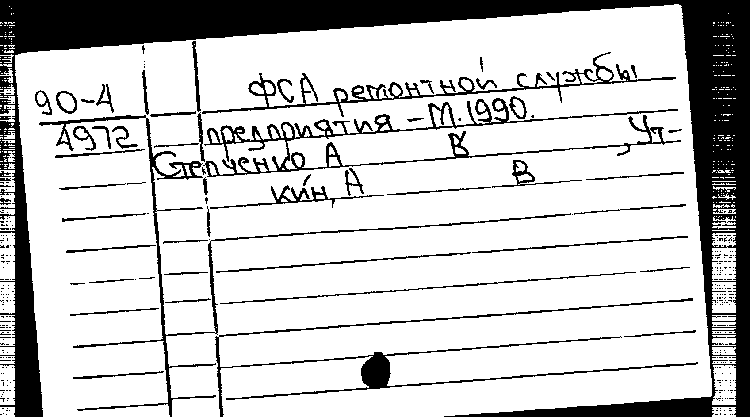 90-4 ФСА ремонтной службы
4972 предприятия - М. 1990.
Степченко А В , Ут-
кин, А В